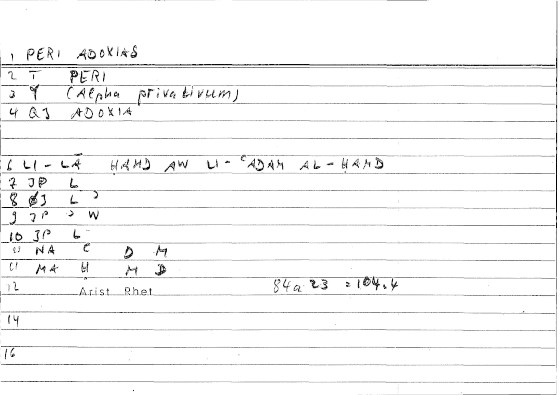 1 PERI ADOXIAS
2 T PERI
3 Y (Alpha privativum)
4 QJ ADOXIA
6 LI-LĀ ḤAMD AW LI-ʿADAM AL-ḤAMD
7 JP L
8 ØJ L ʾ
9 JP ʾ W
10 JP L
11 NA ʿ D M
11 MA Ḥ M D
12 Arist Rhet 84a 23 = 104.4
14
16